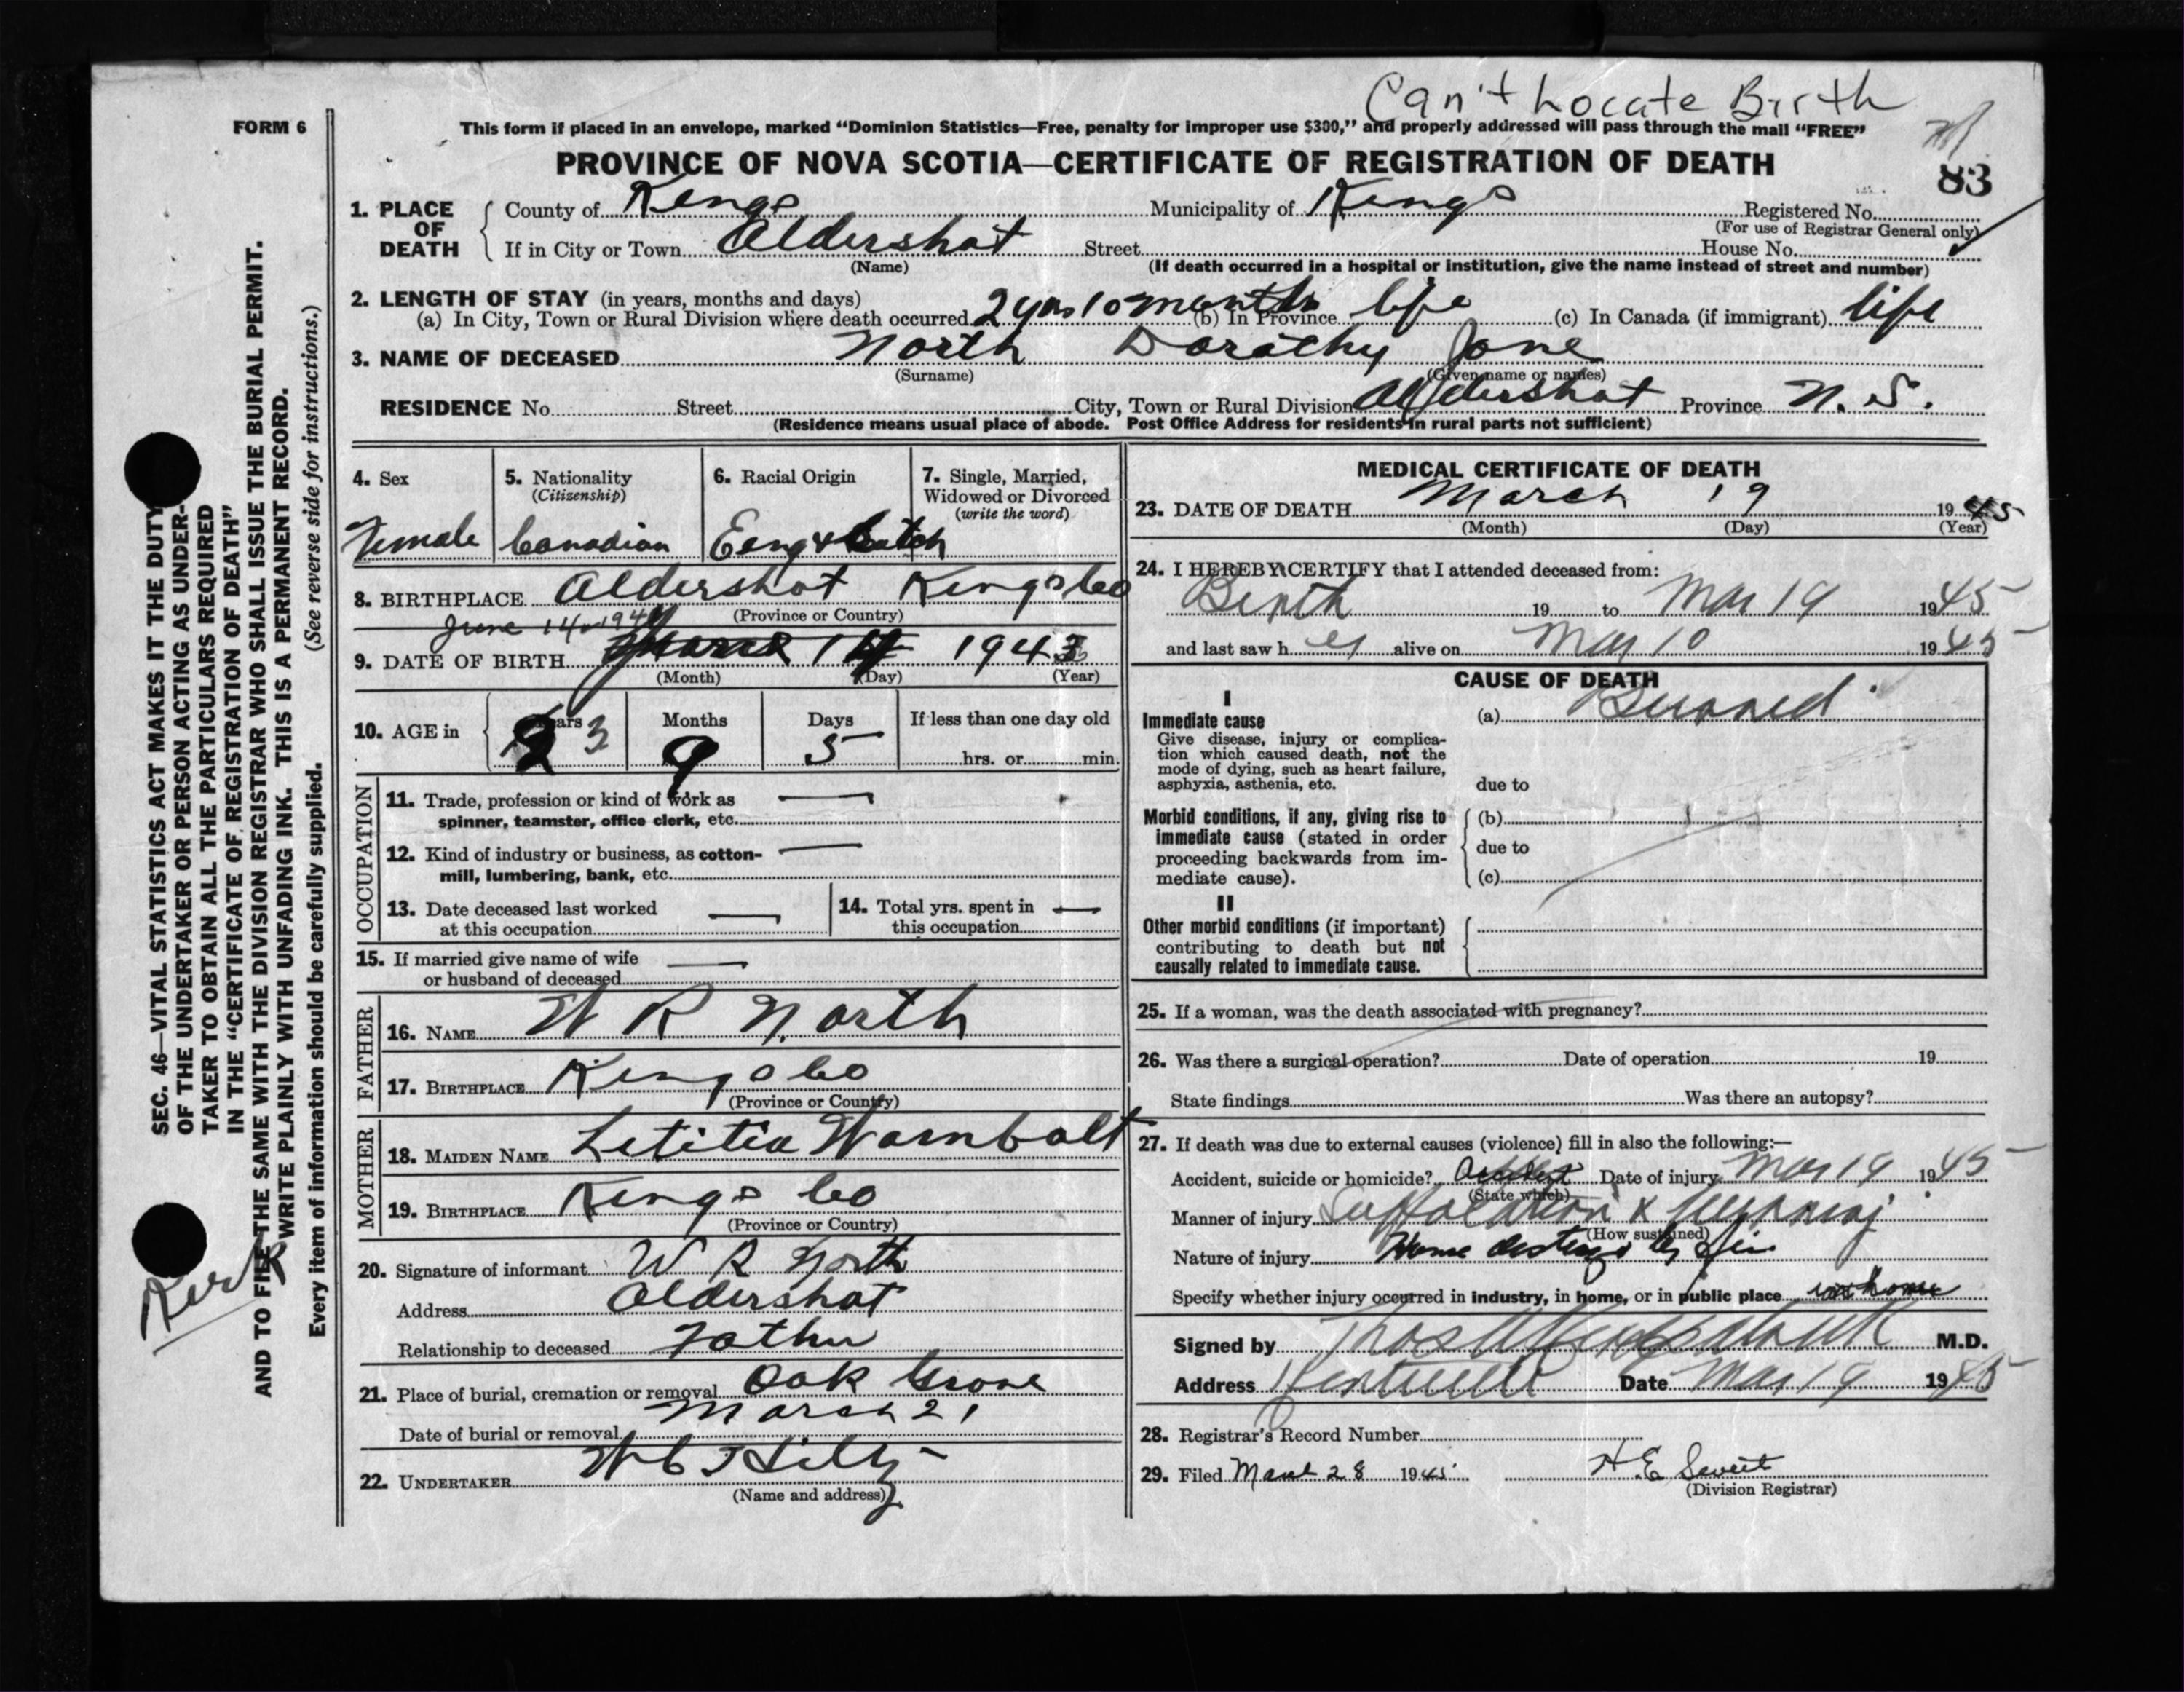 Can't Locate Birth
FORM 6
This form if placed in an envelope, marked “Dominion Statistics—Free, penalty for improper use $300,” and properly addressed will pass through the mail “FREE”
PROVINCE OF NOVA SCOTIA—CERTIFICATE OF REGISTRATION OF DEATH
83
1. PLACE OF DEATH { County of Kings Municipality of Kings Registered No.
(For use of Registrar General only)
If in City or Town Aldershot Street House No.
(Name) (If death occurred in a hospital or institution, give the name instead of street and number)
2. LENGTH OF STAY (in years, months and days)
(a) In City, Town or Rural Division where death occurred 2 yrs 10 months (b) In Province life (c) In Canada (if immigrant) life
3. NAME OF DECEASED North Dorothy Jane
(Surname) (Given name or names)
RESIDENCE No. Street City, Town or Rural Division Aldershot Province N. S.
(Residence means usual place of abode. Post Office Address for residents in rural parts not sufficient)
4. Sex 5. Nationality 6. Racial Origin 7. Single, Married,
(Citizenship) Widowed or Divorced
(write the word)
Female Canadian Eng &
8. BIRTHPLACE Aldershot Kings Co
(Province or Country)
June 14
9. DATE OF BIRTH 14 1943
(Month) (Day) (Year)
10. AGE in { Years Months Days If less than one day old
2 3 9 5 hrs. or min.
OCCUPATION
11. Trade, profession or kind of work as —
spinner, teamster, office clerk, etc.
12. Kind of industry or business, as cotton- —
mill, lumbering, bank, etc.
13. Date deceased last worked — 14. Total yrs. spent in —
at this occupation this occupation
15. If married give name of wife —
or husband of deceased
FATHER
16. NAME W R North
17. BIRTHPLACE Kings Co
(Province or Country)
MOTHER
18. MAIDEN NAME Letitia Warnbolt
19. BIRTHPLACE Kings Co
(Province or Country)
20. Signature of informant W R North
Address Aldershot
Relationship to deceased Father
21. Place of burial, cremation or removal Oak Grove
Date of burial or removal March 21
22. UNDERTAKER W C
(Name and address)
MEDICAL CERTIFICATE OF DEATH
23. DATE OF DEATH March 19 1945
(Month) (Day) (Year)
24. I HEREBY CERTIFY that I attended deceased from:
Birth 19 to Mar 19 1945
and last saw her alive on Mar 10 1945
CAUSE OF DEATH
I
Immediate cause (a) Burned
Give disease, injury or complica-
tion which caused death, not the
mode of dying, such as heart failure,
asphyxia, asthenia, etc. due to
Morbid conditions, if any, giving rise to (b)
immediate cause (stated in order due to
proceeding backwards from im-
mediate cause). (c)
II
Other morbid conditions (if important)
contributing to death but not
causally related to immediate cause.
25. If a woman, was the death associated with pregnancy?
26. Was there a surgical operation? Date of operation 19
State findings Was there an autopsy?
27. If death was due to external causes (violence) fill in also the following:—
Accident, suicide or homicide? Accident Date of injury Mar 19 1945
(State which)
Manner of injury Suffocation & burning
(How sustained)
Nature of injury Home destroyed by fire
Specify whether injury occurred in industry, in home, or in public place in home
Signed by M.D.
Address Kentville Date Mar 19 1945
28. Registrar's Record Number
29. Filed March 28 1945 H. E.
(Division Registrar)
SEC. 46—VITAL STATISTICS ACT MAKES IT THE DUTY
OF THE UNDERTAKER OR PERSON ACTING AS UNDER-
TAKER TO OBTAIN ALL THE PARTICULARS REQUIRED
IN THE “CERTIFICATE OF REGISTRATION OF DEATH”
AND TO FILE THE SAME WITH THE DIVISION REGISTRAR WHO SHALL ISSUE THE BURIAL PERMIT.
WRITE PLAINLY WITH UNFADING INK. THIS IS A PERMANENT RECORD.
Every item of information should be carefully supplied. (See reverse side for instructions.)